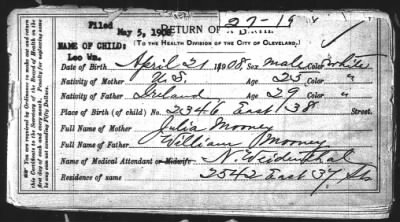 27-19
Filed
May 5, 1908
RETURN OF A BIRTH.
NAME OF CHILD:
(To the Health Division of the City of Cleveland.)
Leo Wm.
Date of Birth April 21 1908 Sex male Color White
Nativity of Mother U.S. Age 25 Color "
Nativity of Father Ireland Age 29 Color "
Place of Birth (of child) No. 2346 East 38 Street.
Full Name of Mother Julia Mooney
Full Name of Father William Mooney
Name of Medical Attendant or Midwife N. Weidenthal
Residence of same 2542 East 37 St
You are required by Ordinance to make out and return this Certificate to the Secretary of the Board of Health on the first day of each and every month. Penalty for neglecting same is any sum not exceeding Fifty Dollars.